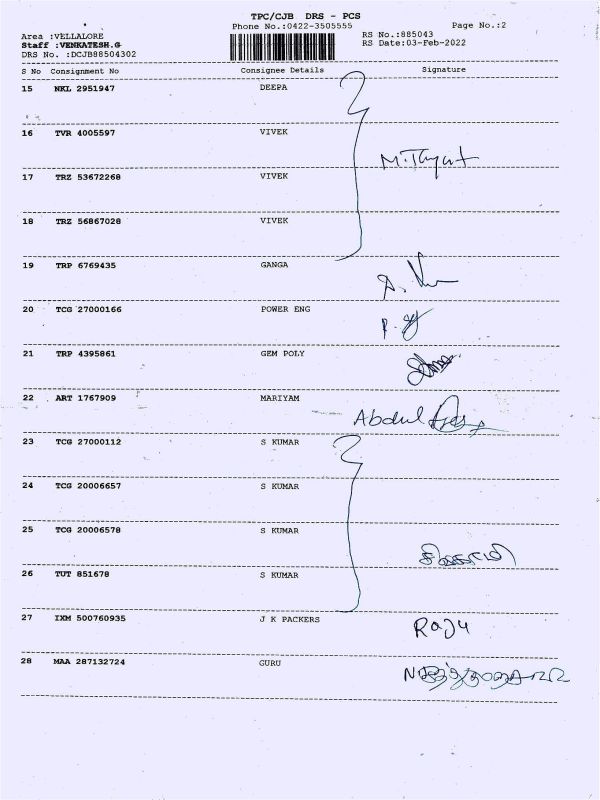 TPC/CJB DRS - PCS
Phone No.:0422-3505555 Page No.:2
Area :VELLALORE RS No.:885043
Staff :VENKATESH.G RS Date:03-Feb-2022
DRS No. :DCJB88504302
S No Consignment No Consignee Details Signature
15 NKL 2951947 DEEPA
16 TVR 4005597 VIVEK
17 TRZ 53672268 VIVEK
18 TRZ 56867028 VIVEK
19 TRP 6769435 GANGA
20 TCG 27000166 POWER ENG
21 TRP 4395861 GEM POLY
22 ART 1767909 MARIYAM
Abdul
23 TCG 27000112 S KUMAR
24 TCG 20006657 S KUMAR
25 TCG 20006578 S KUMAR
26 TUT 851678 S KUMAR
27 IXM 500760935 J K PACKERS
Raju
28 MAA 287132724 GURU